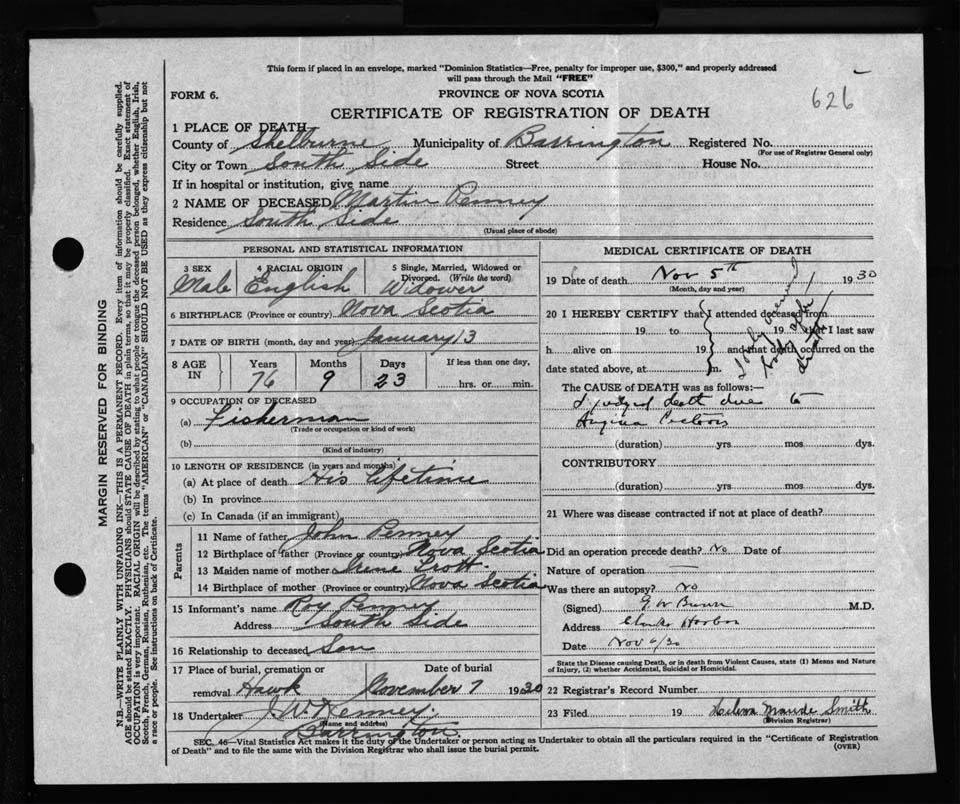 This form if placed in an envelope, marked "Dominion Statistics—Free, penalty for improper use, $300," and properly addressed
will pass through the Mail "FREE"
FORM 6.
PROVINCE OF NOVA SCOTIA
626
CERTIFICATE OF REGISTRATION OF DEATH
1 PLACE OF DEATH
County of Shelburne Municipality of Barrington Registered No.
(For use of Registrar General only)
City or Town South Side Street House No.
If in hospital or institution, give name
2 NAME OF DECEASED Martin Penney
Residence South Side
(Usual place of abode)
PERSONAL AND STATISTICAL INFORMATION
3 SEX 4 RACIAL ORIGIN 5 Single, Married, Widowed or
Divorced. (Write the word)
Male English Widower
6 BIRTHPLACE (Province or country) Nova Scotia
7 DATE OF BIRTH (month, day and year) January 13
8 AGE IN Years Months Days If less than one day,
76 9 23 hrs. or min.
9 OCCUPATION OF DECEASED
(a) Fisherman
(Trade or occupation or kind of work)
(b)
(Kind of industry)
10 LENGTH OF RESIDENCE (in years and months)
(a) At place of death His lifetime
(b) In province
(c) In Canada (if an immigrant)
Parents
11 Name of father John Penney
12 Birthplace of father (Province or country) Nova Scotia
13 Maiden name of mother Irene Trott
14 Birthplace of mother (Province or country) Nova Scotia
15 Informant's name Roy Penney
Address South Side
16 Relationship to deceased Son
17 Place of burial, cremation or Date of burial
removal Hawk November 7 1930
18 Undertaker J. W. Kenney
(Name and address)
Barrington
MEDICAL CERTIFICATE OF DEATH
19 Date of death Nov 5th 1930
(Month, day and year)
20 I HEREBY CERTIFY that I attended deceased from
19 to 19 that I last saw
h alive on 19 and that death occurred on the
date stated above, at m.
I only viewed
body after
death
The CAUSE of DEATH was as follows:—
I judged death due to
Angina Pectoris
(duration) yrs mos dys.
CONTRIBUTORY
(duration) yrs mos dys.
21 Where was disease contracted if not at place of death?
Did an operation precede death? No Date of
Nature of operation —
Was there an autopsy? No
(Signed) M.D.
Address Clarks Harbor
Date Nov 6/30
State the Disease causing Death, or in death from Violent Causes, state (1) Means and Nature
of Injury, (2) whether Accidental, Suicidal or Homicidal.
22 Registrar's Record Number
23 Filed 19 Maude Smith
(Division Registrar)
SEC. 46—Vital Statistics Act makes it the duty of the Undertaker or person acting as Undertaker to obtain all the particulars required in the "Certificate of Registration
of Death" and to file the same with the Division Registrar who shall issue the burial permit.
(OVER)
MARGIN RESERVED FOR BINDING
N.B.—WRITE PLAINLY WITH UNFADING INK—THIS IS A PERMANENT RECORD. Every item of information should be carefully supplied.
AGE should be stated EXACTLY. PHYSICIANS should STATE CAUSE OF DEATH in plain terms, so that it may be properly classified. Exact statement of
OCCUPATION is very important. RACIAL ORIGIN will be described by stating to what people or tongue the deceased person belonged, whether English, Irish,
Scotch, French, German, Russian, Ruthenian, etc. The terms "AMERICAN" or "CANADIAN" SHOULD NOT BE USED as they express citizenship but not
a race or people. See instructions on back of Certificate.